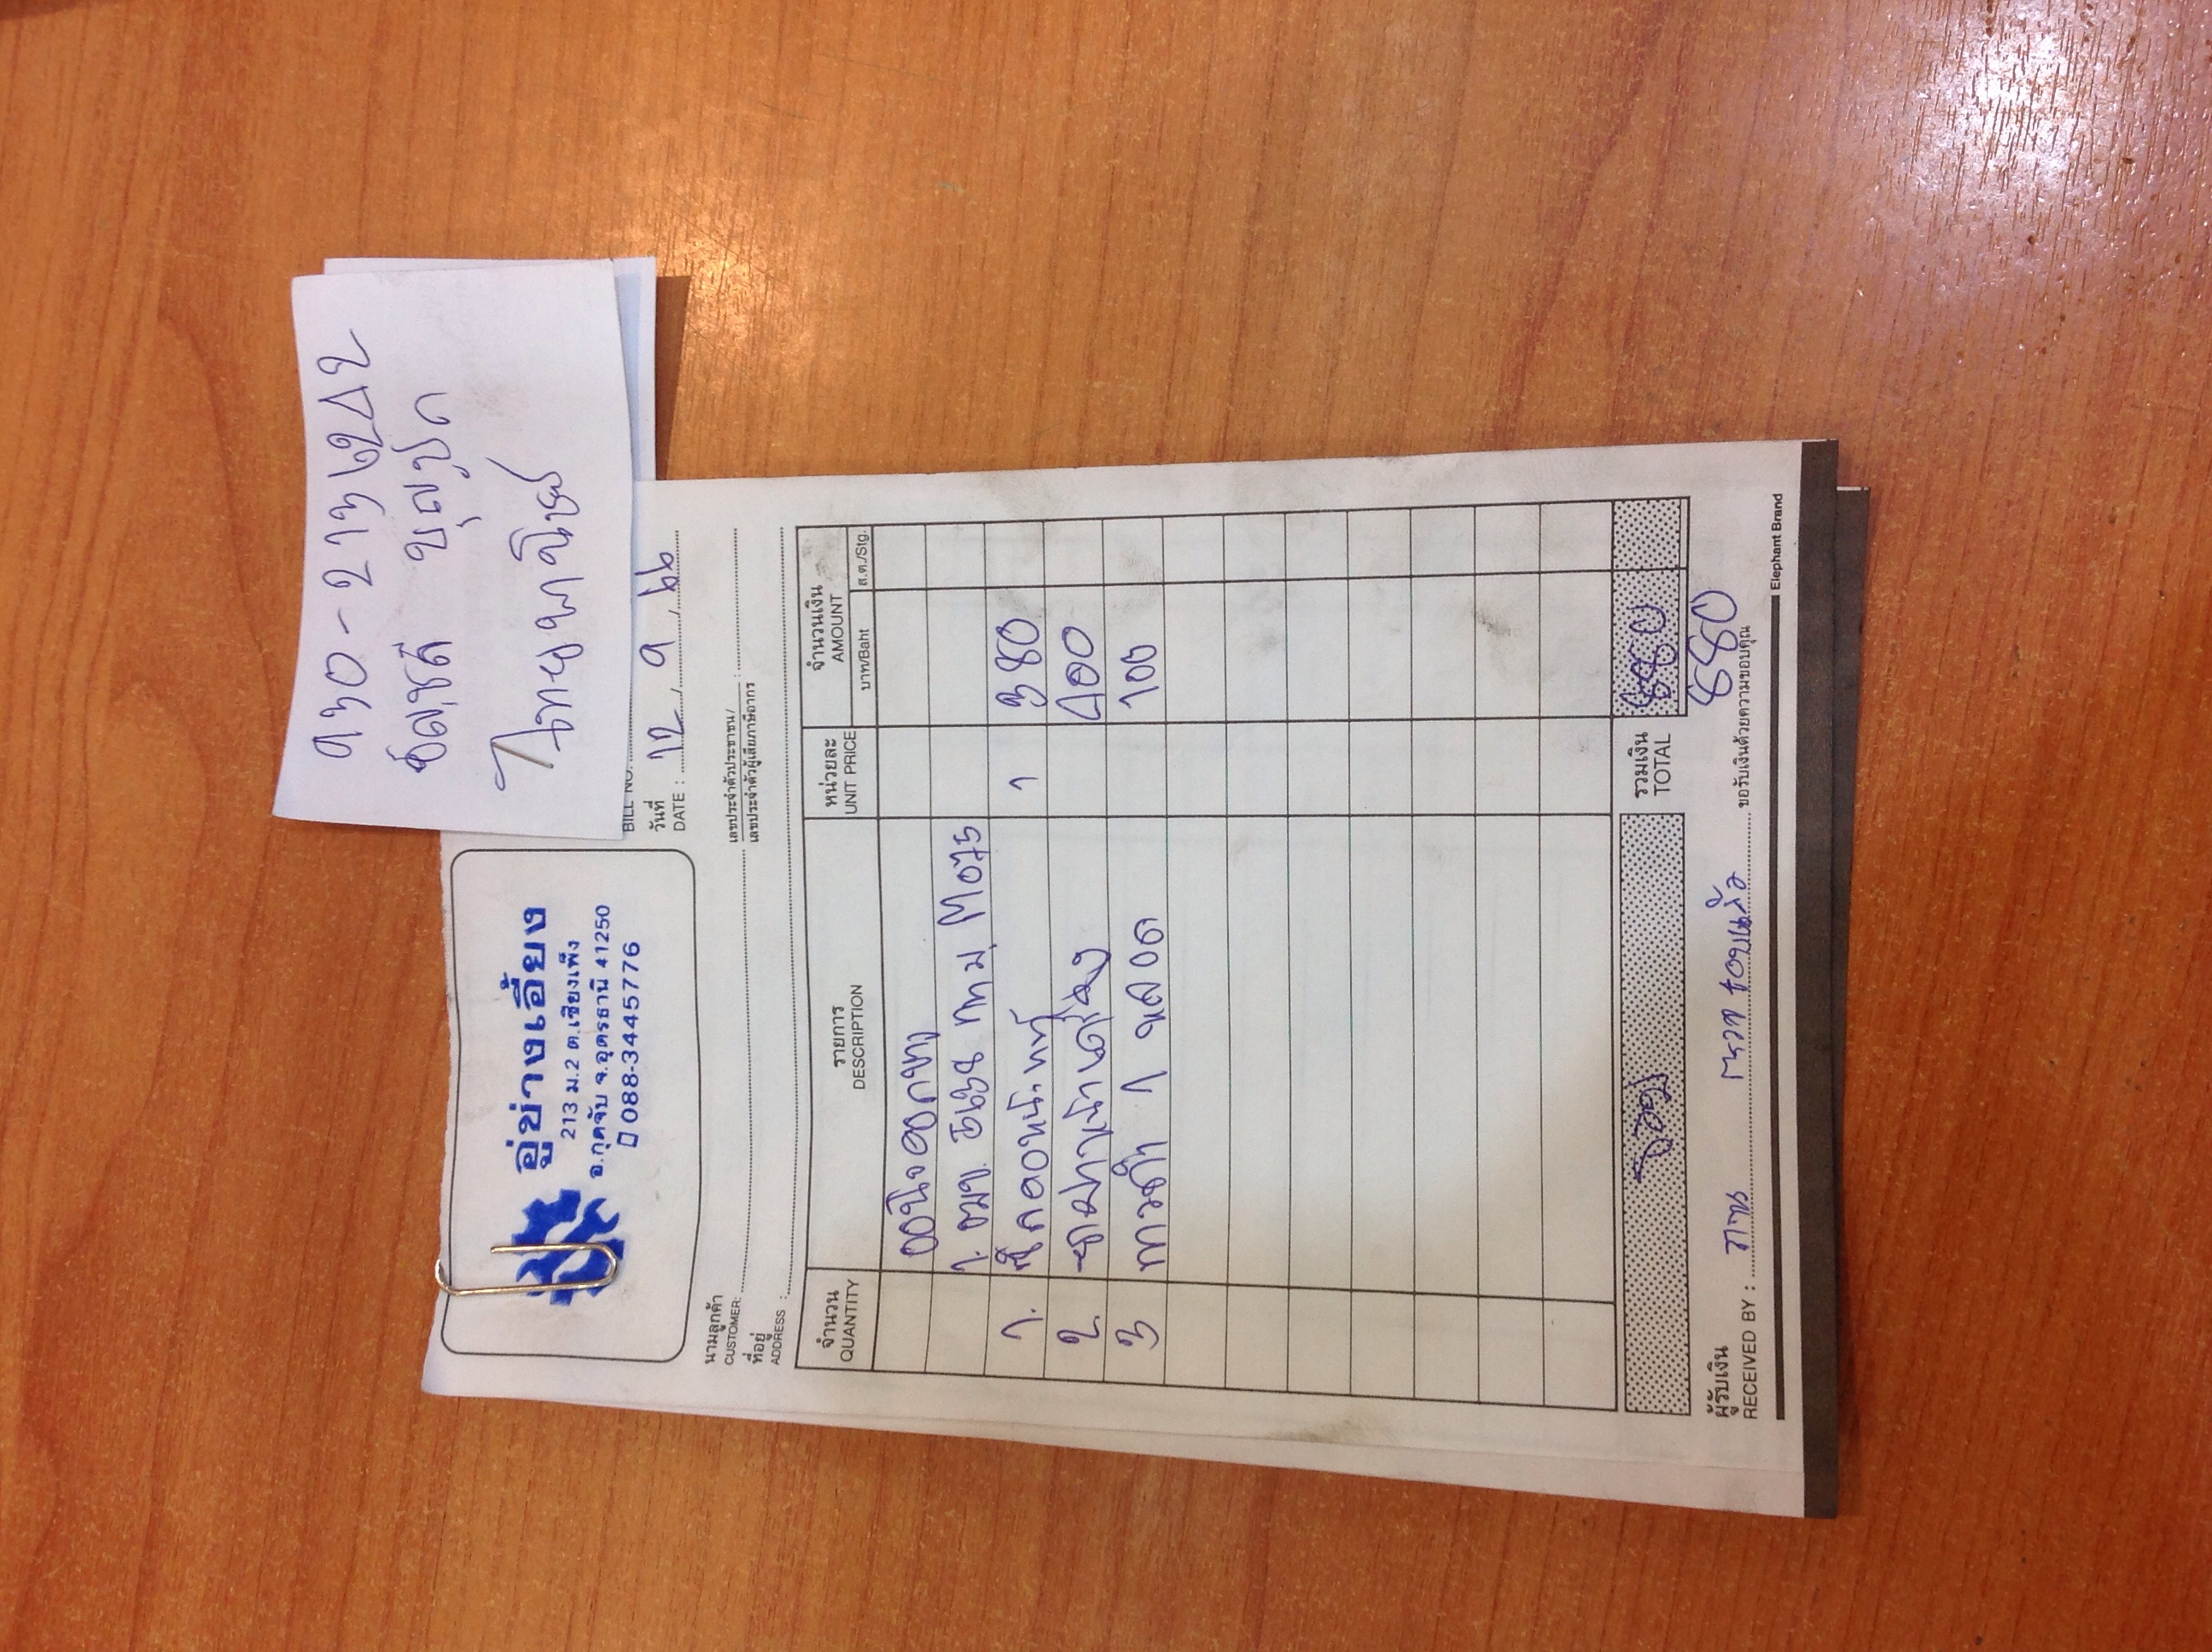 930-2136242
ชัลุชลี บุญปุก
ไทยพาณิชย์
อู่ช่างเอี้ยง
213 ม.2 ต.เชียงเพ็ง
อ.กุดจับ จ.อุดรธานี 41250
088-3445776
BILL NO.
วันที่
DATE : 12 / 9 / 66
นามลูกค้า
CUSTOMER:
เลขประจำตัวประชาชน/
เลขประจำตัวผู้เสียภาษีอากร :
ที่อยู่
ADDRESS :
จำนวน
QUANTITY
รายการ
DESCRIPTION
หน่วยละ
UNIT PRICE
จำนวนเงิน
AMOUNT
บาท/Baht
ส.ต./Stg.
1. 1 380
2 400
3 กาวดำ 1 หลอด 100
รวมเงิน
TOTAL 880
880
ผู้รับเงิน
RECEIVED BY :
ขอรับเงินด้วยความขอบคุณ
Elephant Brand